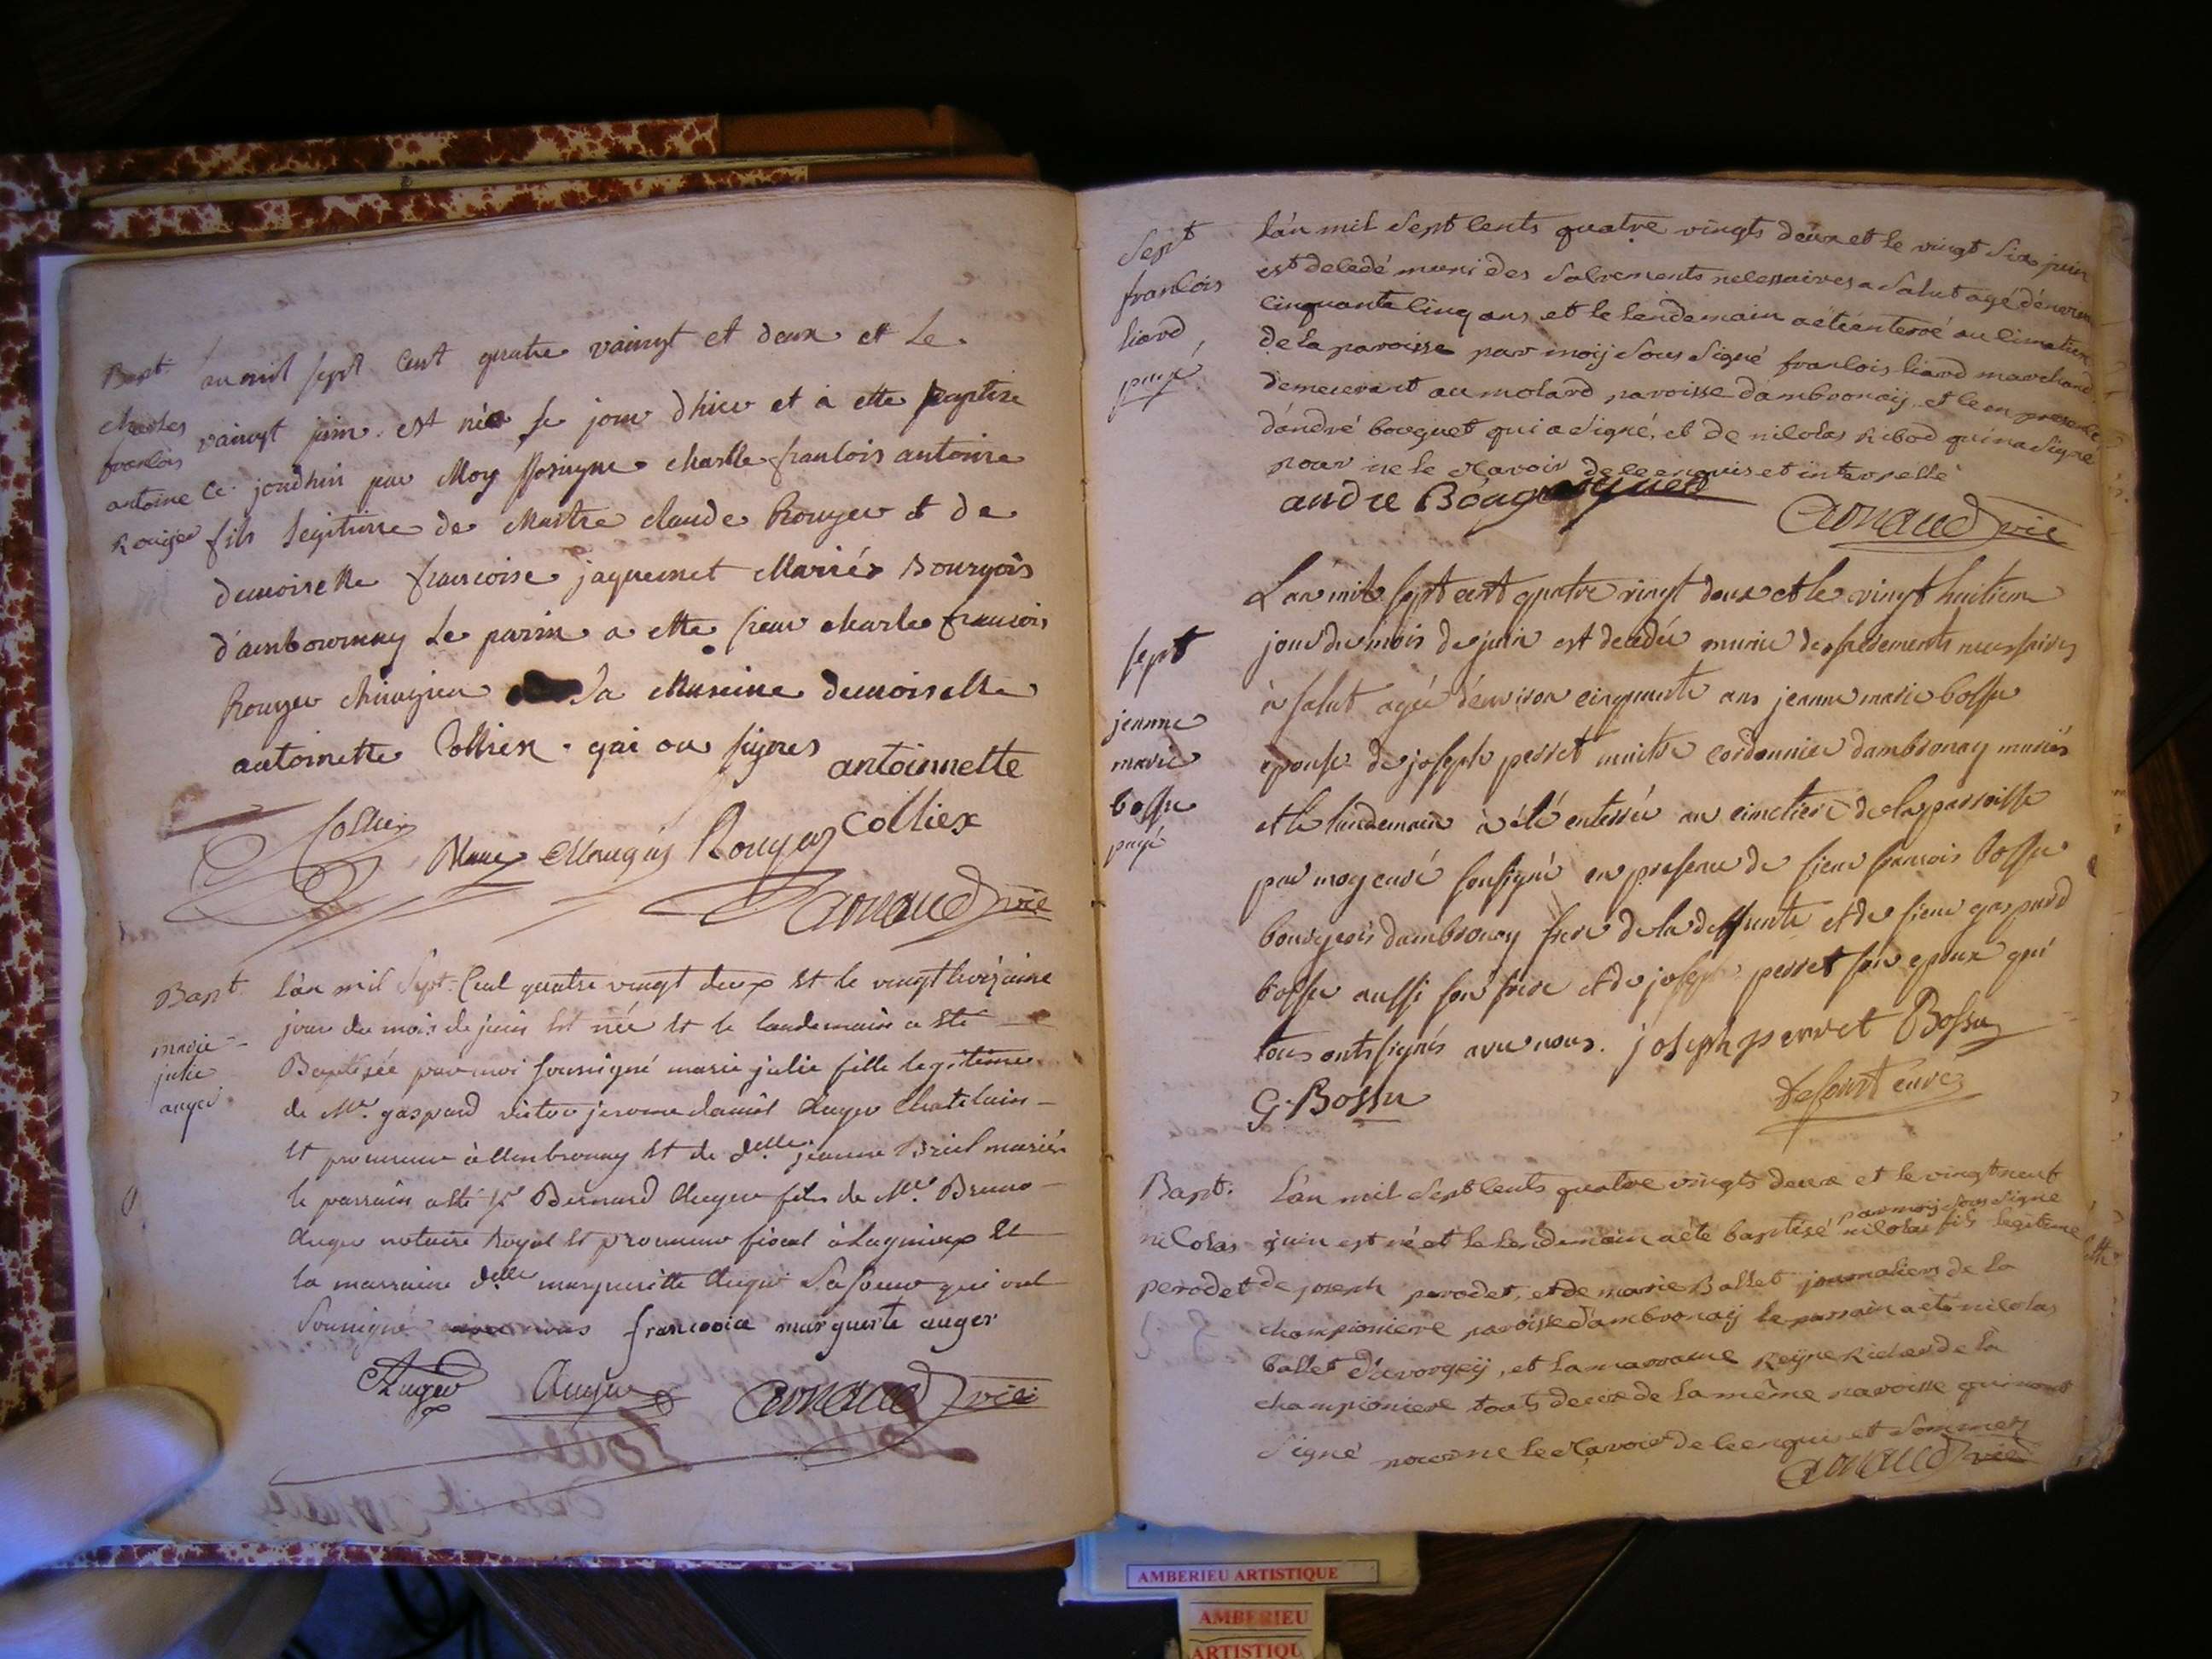 Bapt.
charles
francois
antoine
Rouyer
Lan mil sept cent quatre vaingt et deux et Le
vaingt juin est née le jour dhier et a ette baptise
Ce jourdhui par Moy sousigne charlle francois antoine
fils legitime de Maitre claude Rouyer et de
demoiselle francoise jaquemet Mariés Bourgois
d'ambournay Le parin a ette sieur charle francois
Rouyer chirurgien La Mareine demoiselle
antoinette Colliex qui on signes antoinnette
Colliex Rouyer colliex
arnaud vic
Bapt.
marie
julie
auger
L'an mil Sept Cent quatre vingt deux et le vingt troizaime
jour du mois de juin est née et le landemain a été
Baptisée par moi sousigné marie julie fille legitime
de Me. gaspard victor jerome Auger Chatelain
et procureur à Ambronay et de delle. jeanne mariés
le parrain a été Sr Bernard Auger fils de Me. Bruno
Auger notaire Royal et procureur fiscal à Lagnieux et
la marraine delle margueritte Auger Sa soeur qui ont
Sousigné avec nous marguerite auger
Auger Auger arnaud vic
Sept
francois
liard
payé
L'an mil Sept cents quatre vingts deux et le vingt Six juin
est decedé muni des Sacrements necessaires a Salut agé d'environ
cinquante cinq ans et le lendemain a été enterré au cimetiere
de la paroisse par moij Sous Signé francois liard marchand
demeurant au molard paroisse d'ambronaij et ce en presence
d'andré bouquet qui a Signé, et de nicolas Ribod qui n'a Signé
pour ne le sçavoir de ce enquis et interpellé
andre Bouquet
arnaud vic
Sept
jeanne
marie
bossu
payé
L'an mil sept cent quatre vingt deux et le vingt huitieme
jour du mois de juin est decedée munie des sacrements necessaires
à salut agée d'environ cinquante ans jeanne marie bossu
epouse de joseph perret maitre cordonnier dambronay mariés
et le lendemain à été enterrée au cimetiere de la parroisse
par moy curé sousigné en presence de sieur francois bossu
bourgeois dambronay frere de la deffunte et de sieur gaspard
bossu aussi son frere et de joseph perret son epoux qui
tous ont signés avec nous. joseph perret Bossu
G. Bossu
curé
Bapt.
nicolas
perodet
L'an mil Sept cents quatre vingts deux et le vingt neuf
par moij Sous Signé
juin est né et le lendemain a été baptisé nicolas fils legitime
de joseph perodet, et de marie Ballet journaliers de la
championiere paroisse d'ambronaij le parrain a été nicolas
ballet d'avorgeij, et la marraine Reijne de la
championiere touts deux de la même paroisse qui n'ont
Signé pour ne le sçavoir de ce enquis et Sommés
arnaud vic
AMBERIEU ARTISTIQUE
AMBERIEU
ARTISTIQU